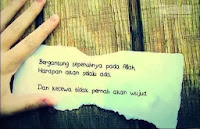 Bergantung sepenuhnya pada Allah,
Harapan akan selalu ada.
Dan kecewa tidak pernah akan wujud.